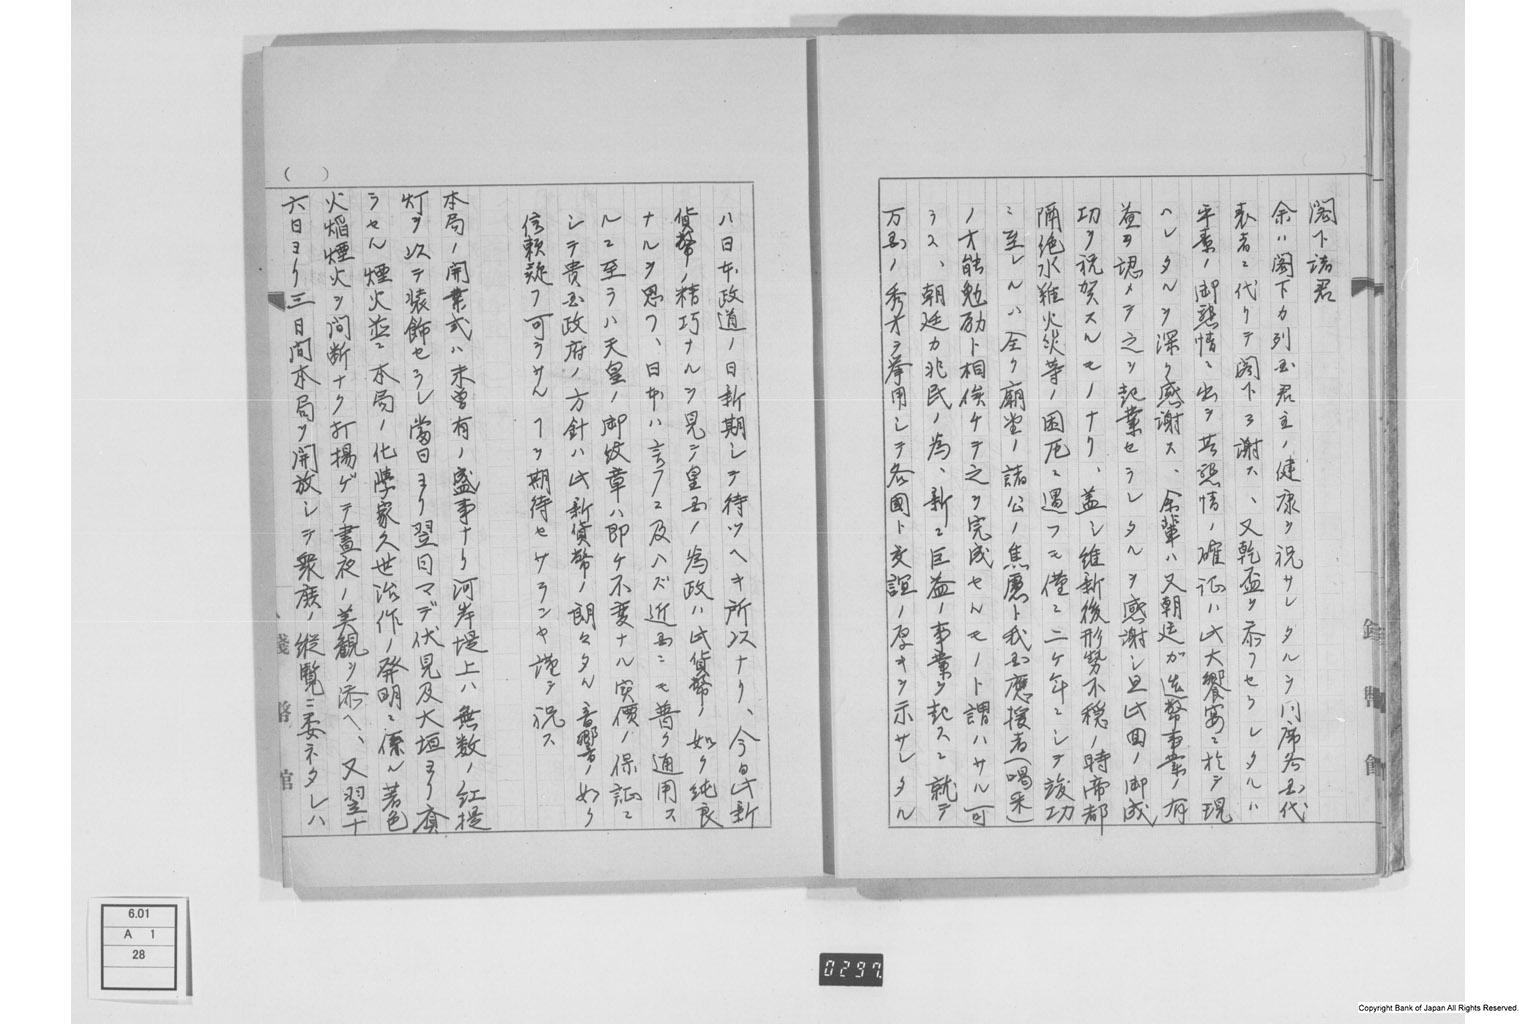 閣下諸君
余ハ閣下カ列国君主ノ健康ヲ祝サレタルヲ同席各国代
表者ニ代リテ閣下ヲ謝ス、又乾盃ヲ忝フセラレタルハ
平素ノ御懇情ニ出ヅ其懇情ノ確証ハ此大饗宴ニ於テ現
ハレタルヲ深ク感謝ス、余輩ハ又朝廷ガ造幣事業ノ有
益ヲ認メテ之ヲ起業セラレタルヲ感謝シ且此回ノ御成
功ヲ祝賀スルモノナリ、蓋シ維新後形勢不穏ノ時帝都
隔絶水難火災等ノ困厄ニ遇フモ僅ニ二ケ年ニシテ竣功
ニ至レルハ全ク廟堂ノ諸公ノ焦慮ト我国應援者(喝采)
ノ才能勉励ト相俟ケテ之ヲ完成セルモノト謂ハサル可
ラス、朝廷カ兆民ノ為、新ニ巨益ノ事業ヲ起スニ就テ
万国ノ秀才ヲ挙用シテ各國ト交誼ノ厚キヲ示サレタル
ハ日本政道ノ日新期シテ待ツヘキ所以ナリ、今日此新
貨幣ノ精巧ナルヲ見テ皇国ノ為政ハ此貨幣ノ如ク純良
ナルヲ思フ、日本ハ言フニ及ハズ近国ニモ普ク通用ス
ルニ至ラハ天皇ノ御紋章ハ即ケ不変ナル実價ノ保証ニ
シテ貴国政府ノ方針ハ此新貨幣ノ朗々タル音響ノ如ク
信頼疑フ可ラサルヿヲ期待セサランヤ謹テ祝ス
本局ノ開業式ハ未曽有ノ盛事ナリ河岸堤上ハ無数ノ紅提
灯ヲ以テ装飾セラレ當日ヨリ翌日マデ伏見及大垣ヨリ齎
ラセル煙火並ニ本局ノ化學家久世治作ノ発明ニ係ル著色
火焔煙火ヲ間断ナク打揚ゲテ晝夜ノ美観ヲ添ヘ、又翌十
六日ヨリ三日間本局ヲ開放シテ衆庶ノ縦覧ニ委ネタレハ
6.01
A 1
28
0297
Copyright Bank of Japan All Rights Reserved.